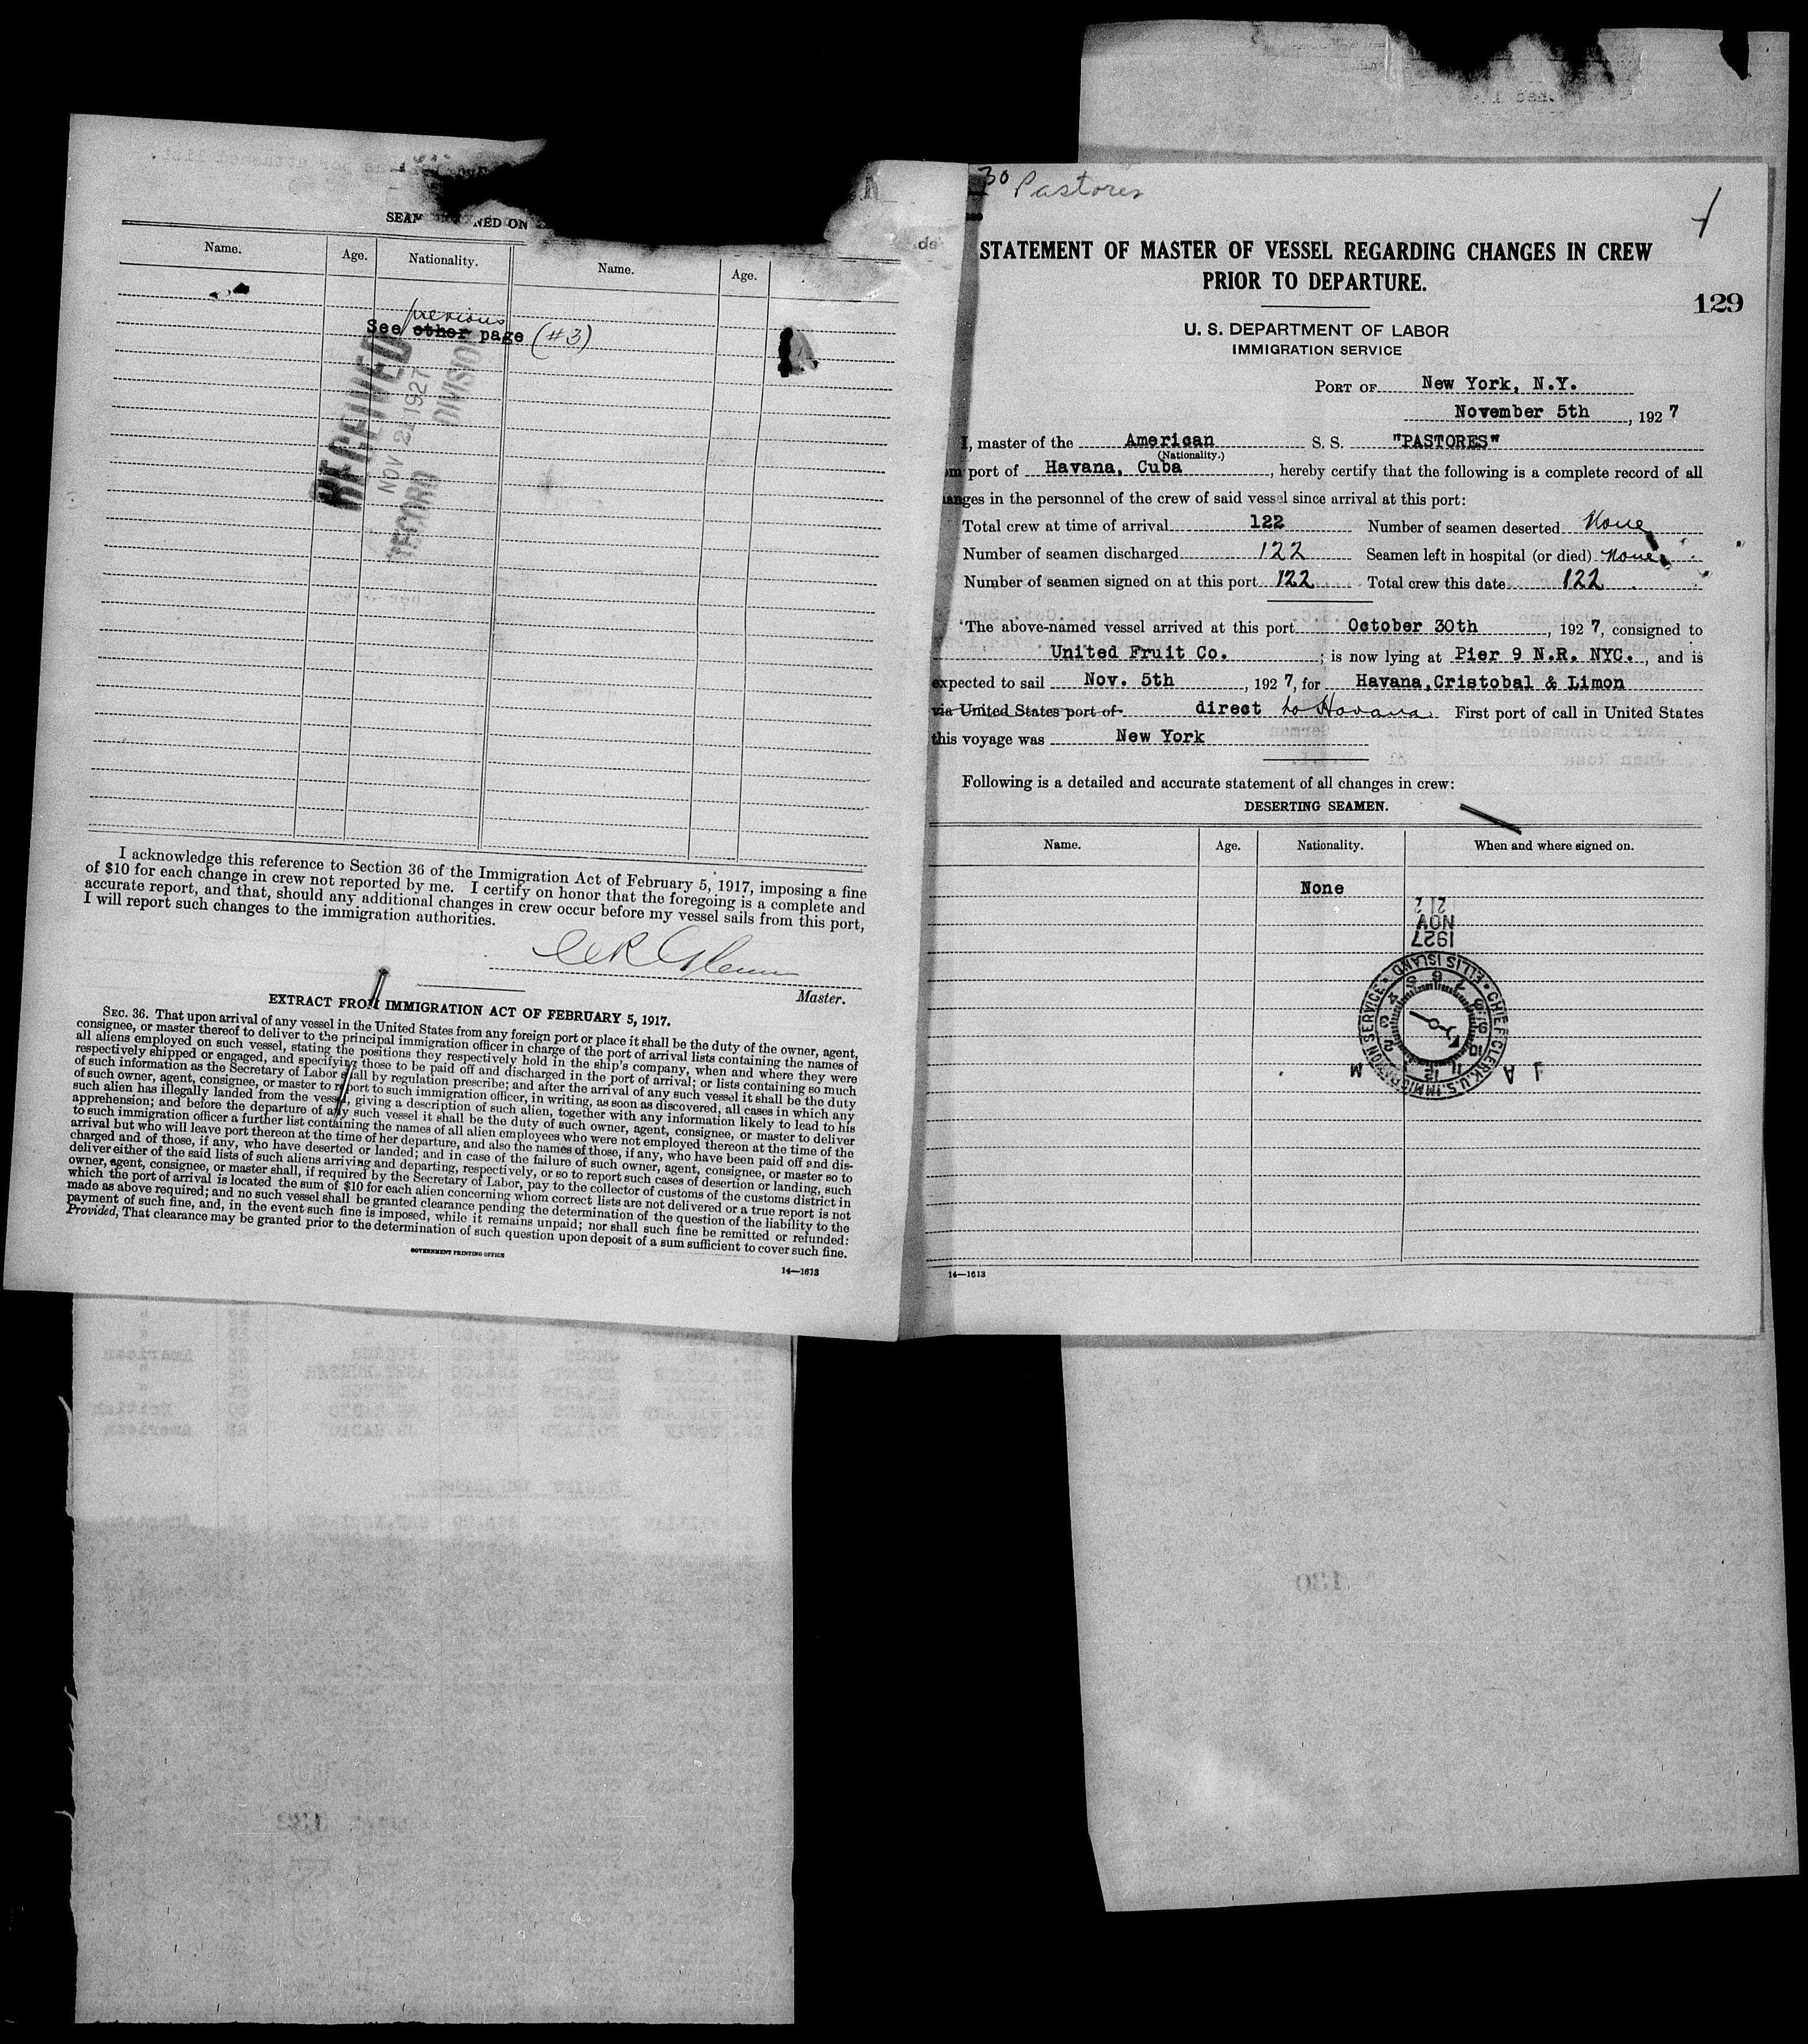 Name.
Age.
Nationality.
Name.
Age.
previous
See other page (#3)
RECEIVED
NOV 21 1927
RECORD DIVISION
I acknowledge this reference to Section 36 of the Immigration Act of February 5, 1917, imposing a fine
of $10 for each change in crew not reported by me. I certify on honor that the foregoing is a complete and
accurate report, and that, should any additional changes in crew occur before my vessel sails from this port,
I will report such changes to the immigration authorities.
Master.
EXTRACT FROM IMMIGRATION ACT OF FEBRUARY 5, 1917.
SEC. 36. That upon arrival of any vessel in the United States from any foreign port or place it shall be the duty of the owner, agent,
consignee, or master thereof to deliver to the principal immigration officer in charge of the port of arrival lists containing the names of
all aliens employed on such vessel, stating the positions they respectively hold in the ship's company, when and where they were
respectively shipped or engaged, and specifying those to be paid off and discharged in the port of arrival; or lists containing so much
of such information as the Secretary of Labor shall by regulation prescribe; and after the arrival of any such vessel it shall be the duty
of such owner, agent, consignee, or master to report to such immigration officer, in writing, as soon as discovered, all cases in which any
such alien has illegally landed from the vessel, giving a description of such alien, together with any information likely to lead to his
apprehension; and before the departure of any such vessel it shall be the duty of such owner, agent, consignee, or master to deliver
to such immigration officer a further list containing the names of all alien employees who were not employed thereon at the time of the
arrival but who will leave port thereon at the time of her departure, and also the names of those, if any, who have been paid off and dis-
charged and of those, if any, who have deserted or landed; and in case of the failure of such owner, agent, consignee, or master so to
deliver either of the said lists of such aliens arriving and departing, respectively, or so to report such cases of desertion or landing, such
owner, agent, consignee, or master shall, if required by the Secretary of Labor, pay to the collector of customs of the customs district in
which the port of arrival is located the sum of $10 for each alien concerning whom correct lists are not delivered or a true report is not
made as above required; and no such vessel shall be granted clearance pending the determination of the question of the liability to the
payment of such fine, and, in the event such fine is imposed, while it remains unpaid; nor shall such fine be remitted or refunded:
Provided, That clearance may be granted prior to the determination of such question upon deposit of a sum sufficient to cover such fine.
GOVERNMENT PRINTING OFFICE
14—1613
30 Pastores
STATEMENT OF MASTER OF VESSEL REGARDING CHANGES IN CREW
PRIOR TO DEPARTURE.
129
U. S. DEPARTMENT OF LABOR
IMMIGRATION SERVICE
PORT OF New York, N.Y.
November 5th, 1927
I, master of the American S. S. "PASTORES"
(Nationality.)
port of Havana, Cuba, hereby certify that the following is a complete record of all
in the personnel of the crew of said vessel since arrival at this port:
Total crew at time of arrival 122 Number of seamen deserted None
Number of seamen discharged 122 Seamen left in hospital (or died) None
Number of seamen signed on at this port 122 Total crew this date 122
The above-named vessel arrived at this port October 30th, 1927, consigned to
United Fruit Co. ; is now lying at Pier 9 N.R. NYC., and is
expected to sail Nov. 5th, 1927, for Havana, Cristobal & Limon
via United States port of direct to Havana. First port of call in United States
this voyage was New York
Following is a detailed and accurate statement of all changes in crew:
DESERTING SEAMEN.
Name. Age. Nationality. When and where signed on.
None
1927
NOV
CHIEF CLERK, U.S. IMMIGRATION SERVICE • ELLIS ISLAND •
14—1613